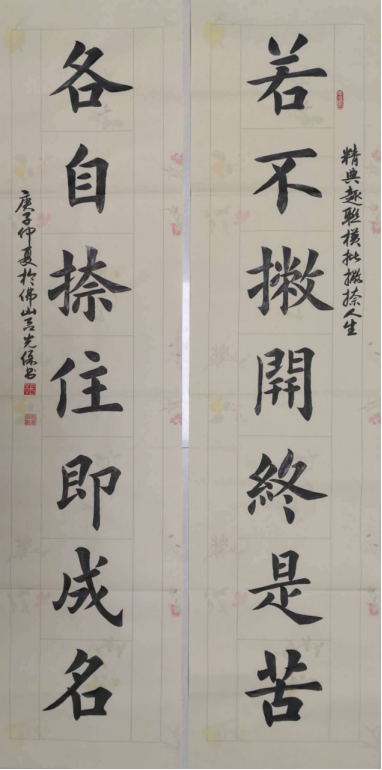 精典趣联横批撇捺人生
若不撇開終是苦
各自捺住即成名
庚子仲夏於佛山